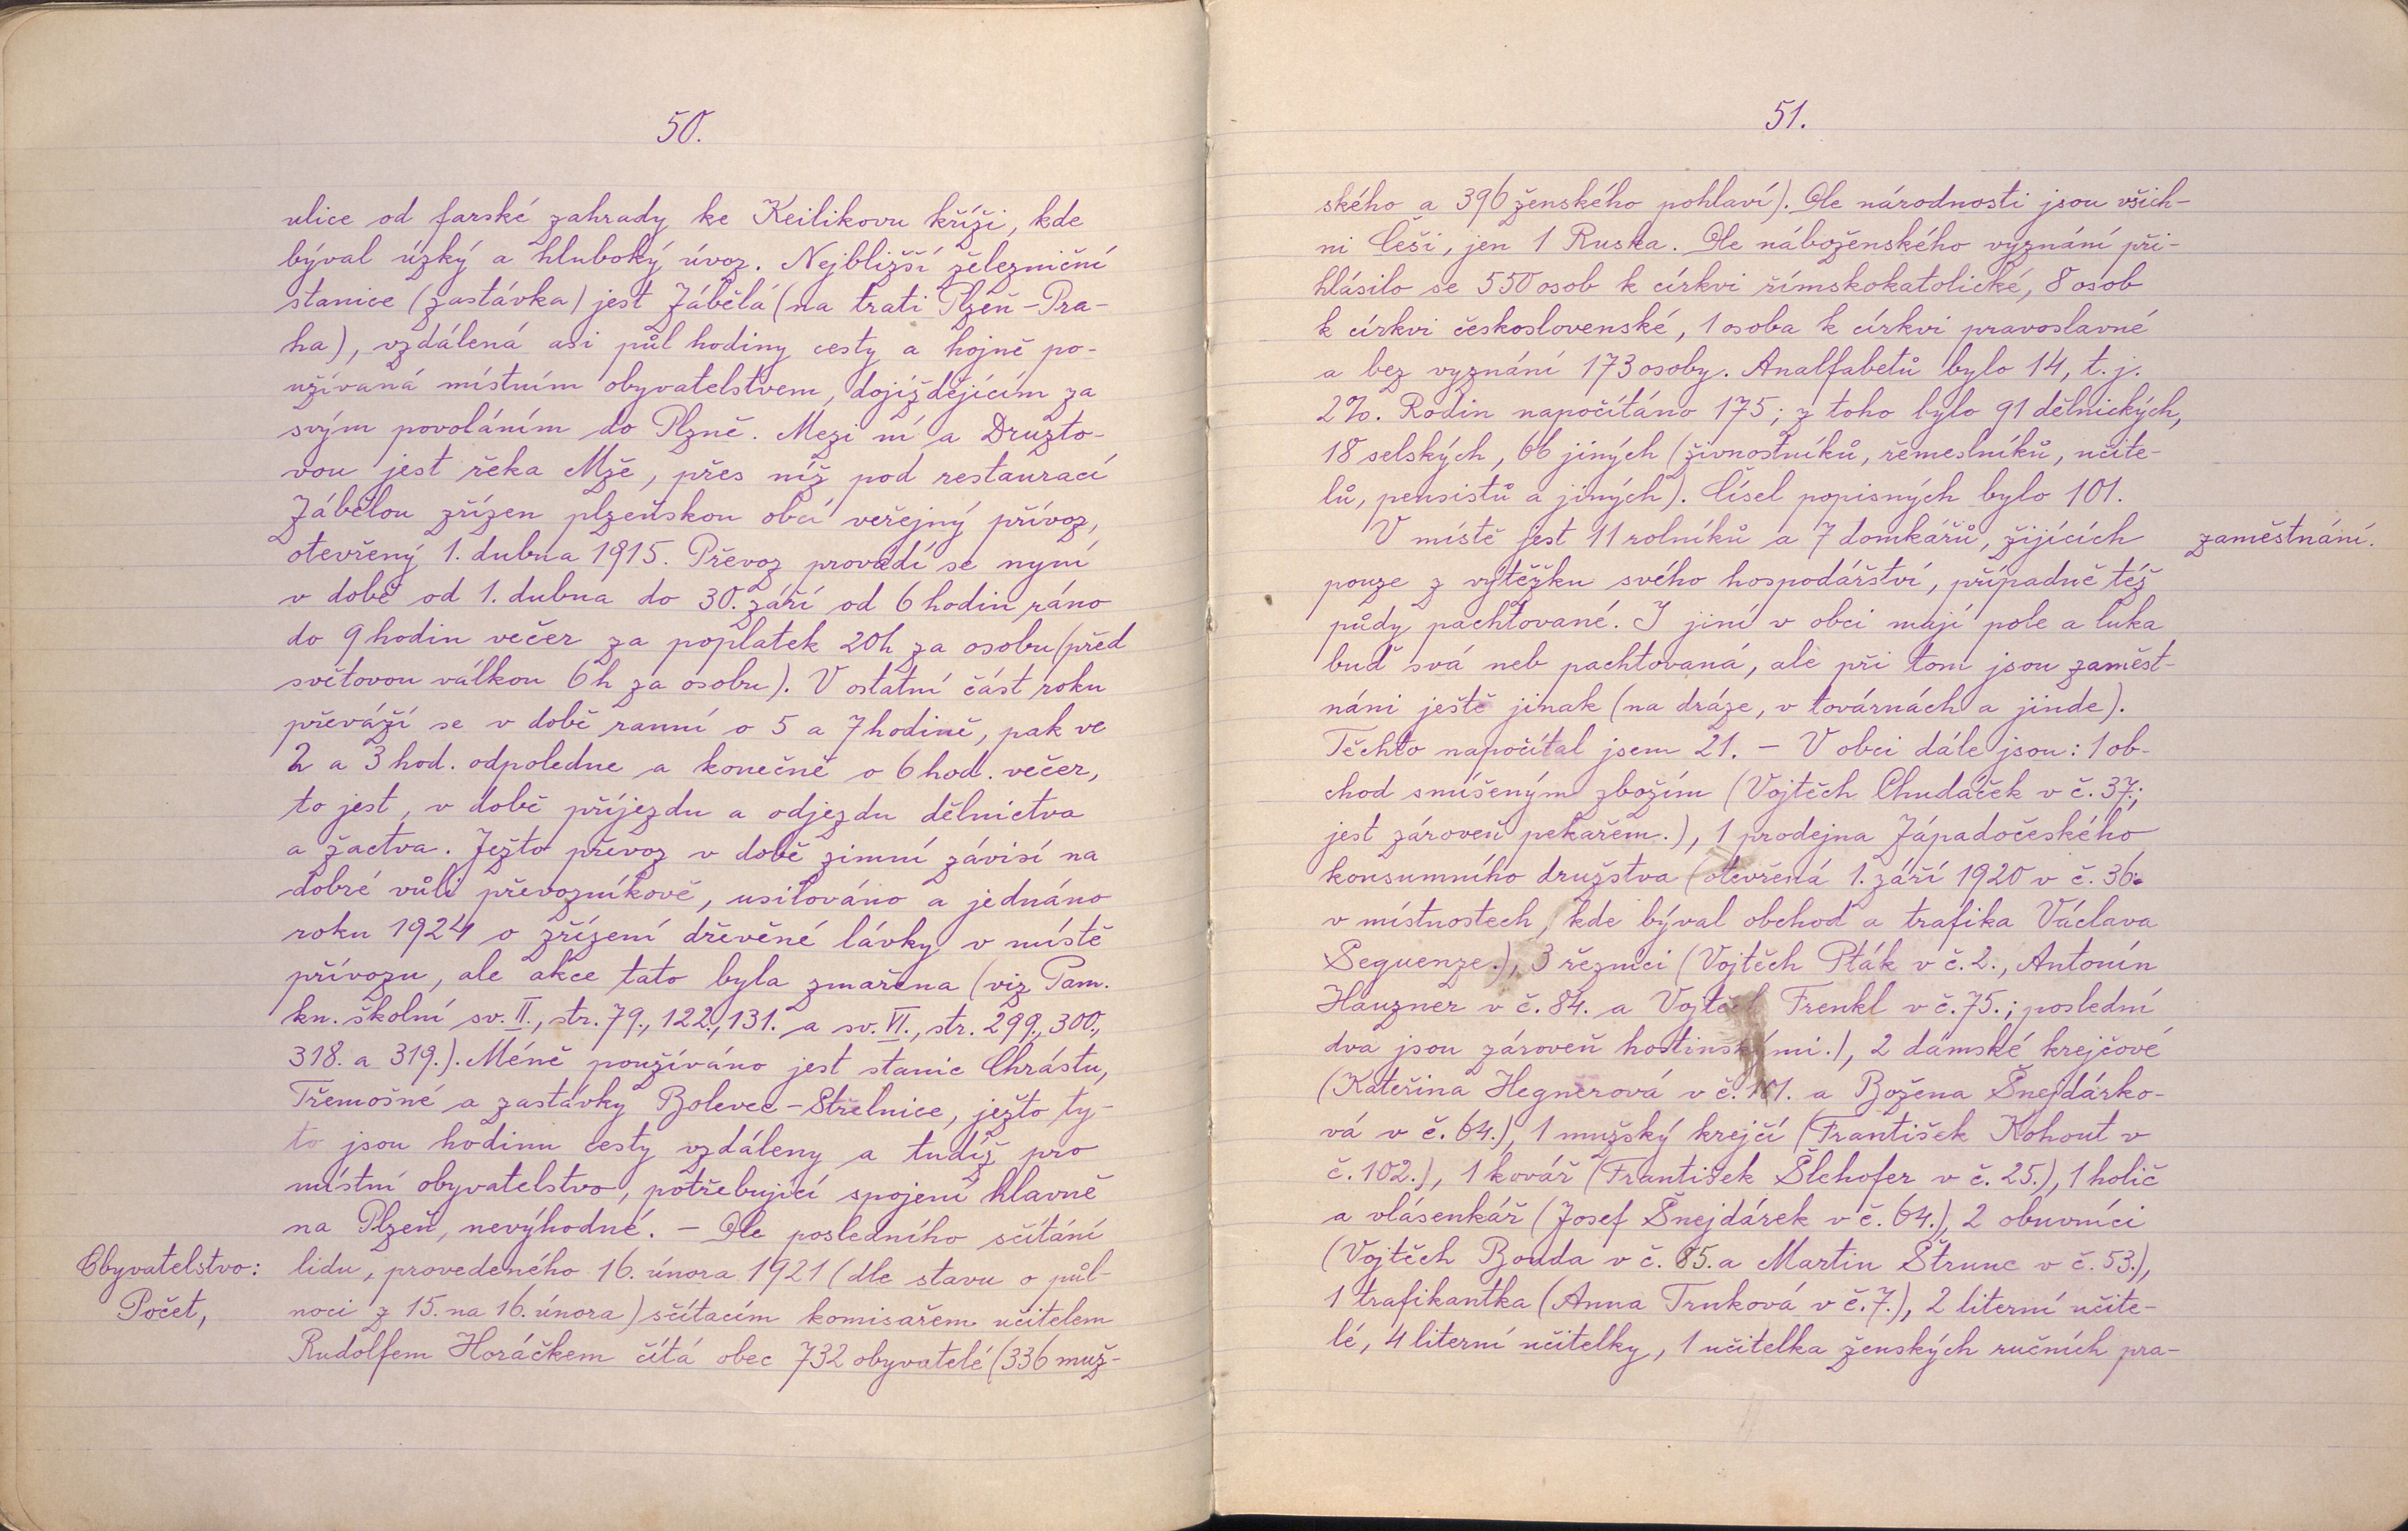 50.
ulice od farské zahrady ke Keilikovu kříži, kde
býval úzký a hluboký úvoz. Nejbližší železniční
stanice (zastávka) jest Zábělá (na trati Plzeň-Pra-
ha), vzdálená asi půl hodiny cesty a hojně po-
užívaná místním obyvatelstvem, dojíždějícím za
svým povoláním do Plzně. Mezi ní a Druzto-
vou jest řeka Mže, přes níž pod restaurací
Zábělou zřízen plzeňskou obcí veřejný přívoz,
otevřený 1. dubna 1915. Převoz provádí se nyní
v době od 1. dubna do 30. září od 6 hodin ráno
do 9 hodin večer za poplatek 20h za osobu (před
světovou válkou 6h za osobu). V ostatní část roku
převáží se v době ranní o 5 a 7 hodině, pak ve
2 a 3 hod. odpoledne a konečně o 6 hod. večer,
to jest, v době příjezdu a odjezdu dělnictva
a žactva. Ježto převoz v době zimní závisí na
dobré vůli převozníkově, usilováno a jednáno
roku 1924 o zřízení dřevěné lávky v místě
přívozu, ale akce tato byla zmařena (viz Pam.
kn. školní sv. II., str. 79., 122., 131. a sv. VI., str. 299., 300.,
318. a 319.). Méně používáno jest stanic Chrástu,
Třemošné a zastávky Bolevec-Střelnice, ježto ty-
to jsou hodinu cesty vzdáleny a tudíž pro
místní obyvatelstvo, potřebující spojení hlavně
na Plzeň, nevýhodné. - Dle posledního sčítání
Obyvatelstvo: lidu, provedeného 16. února 1921 (dle stavu o půl-
Počet, noci z 15. na 16. února) sčítacím komisařem učitelem
Rudolfem Horáčkem čítá obec 732 obyvatelé (336 muž-
51.
ského a 396 ženského pohlaví). Dle národnosti jsou všich-
ni Češi, jen 1 Ruska. Dle náboženského vyznání při-
hlásilo se 550 osob k církvi římskokatolické, 8 osob
k církvi československé, 1 osoba k církvi pravoslavné
a bez vyznání 173 osoby. Analfabetů bylo 14, t. j.
2%. Rodin napočítáno 175; z toho bylo 91 dělnických,
18 selských, 66 jiných (živnostníků, řemeslníků, učite-
lů, pensistů a jiných). Čísel popisných bylo 101.
V místě jest 11 rolníků a 7 domkářů, žijících zaměstnání.
pouze z výtěžku svého hospodářství, případně též
půdy pachtované. I jiní v obci mají pole a luka
buď svá neb pachtovaná, ale při tom jsou zaměst-
náni ještě jinak (na dráze, v továrnách a jinde).
Těchto napočítal jsem 21. - V obci dále jsou: 1 ob-
chod smíšeným zbožím (Vojtěch Chudáček v č. 37.;
jest zároveň pekařem.), 1 prodejna Západočeského
konsumního družstva (otevřená 1. září 1920 v č. 36.
v místnostech, kde býval obchod a trafika Václava
Seguenze.), 3 řezníci (Vojtěch Pták v č. 2., Antonín
Hauzner v č. 84. a Vojtěch Frenkl v č. 75.; poslední
dva jsou zároveň hostinskými.), 2 dámské krejčové
(Kateřina Hegnerová v č. 101. a Božena Šnejdárko-
vá v č. 64.), 1 mužský krejčí (František Kohout v
č. 102.), 1 kovář (František Šlehofer v č. 25.), 1 holič
a vlásenkář (Josef Šnejdárek v č. 64.), 2 obuvníci
(Vojtěch Bouda v č. 85. a Martin Štrunc v č. 53.),
1 trafikantka (Anna Trnková v č. 7.), 2 literní učite-
lé, 4 literní učitelky, 1 učitelka ženských ručních pra-